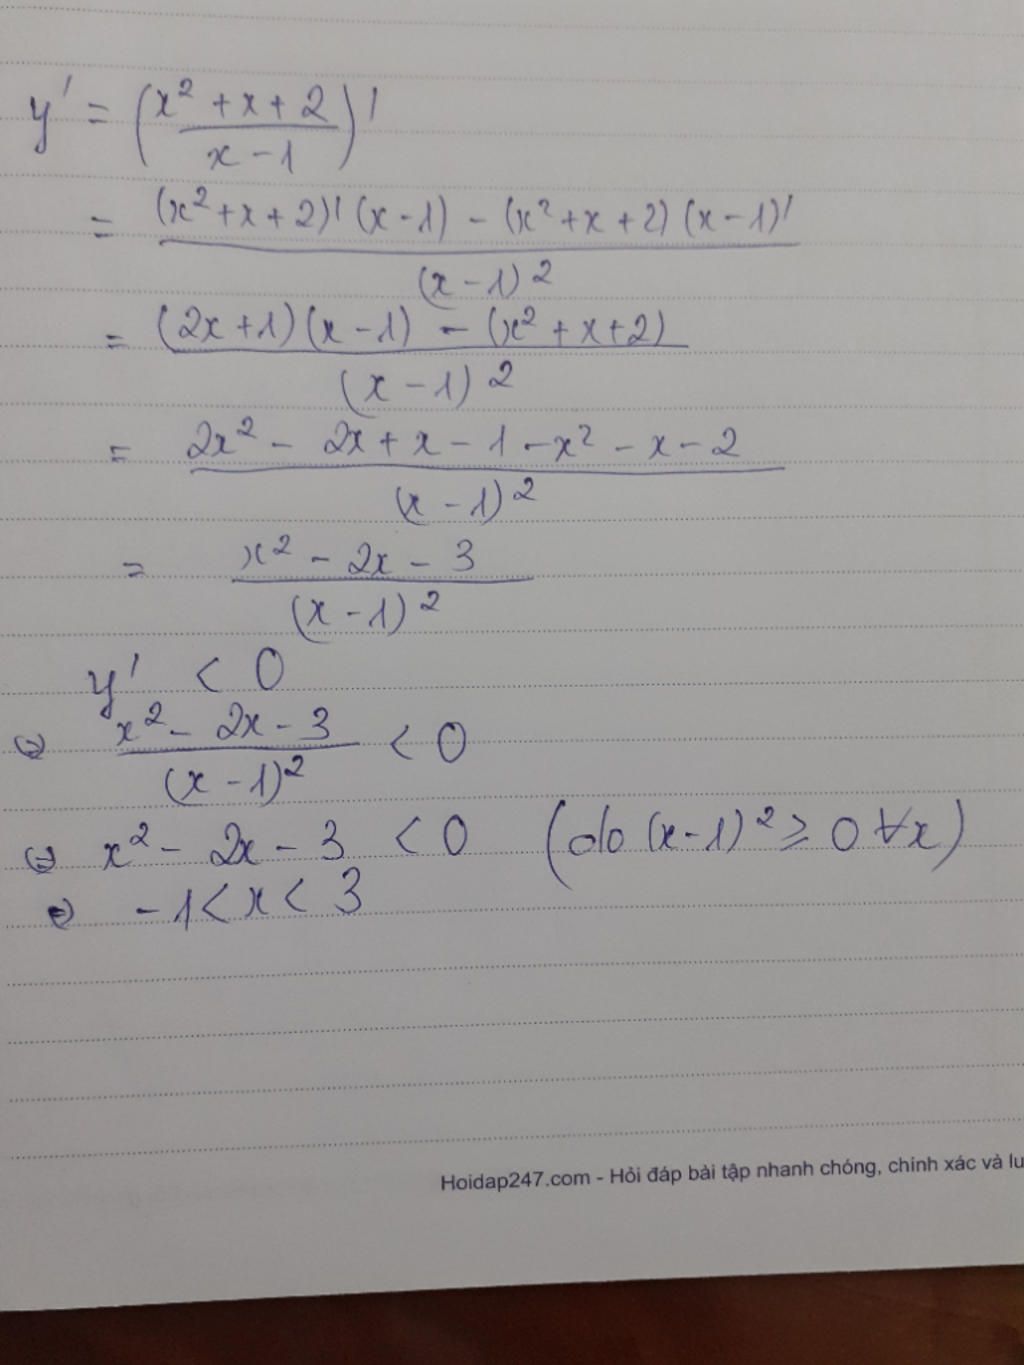 y' = (x² + x + 2 / x - 1)'
= (x² + x + 2)' (x - 1) - (x² + x + 2) (x - 1)' / (x - 1)²
= (2x + 1) (x - 1) - (x² + x + 2) / (x - 1)²
= 2x² - 2x + x - 1 - x² - x - 2 / (x - 1)²
= x² - 2x - 3 / (x - 1)²
y' < 0
⇔ x² - 2x - 3 / (x - 1)² < 0
⇔ x² - 2x - 3 < 0 (do (x - 1)² ≥ 0 ∀x)
⇔ -1 < x < 3
Hoidap247.com - Hỏi đáp bài tập nhanh chóng, chính xác và